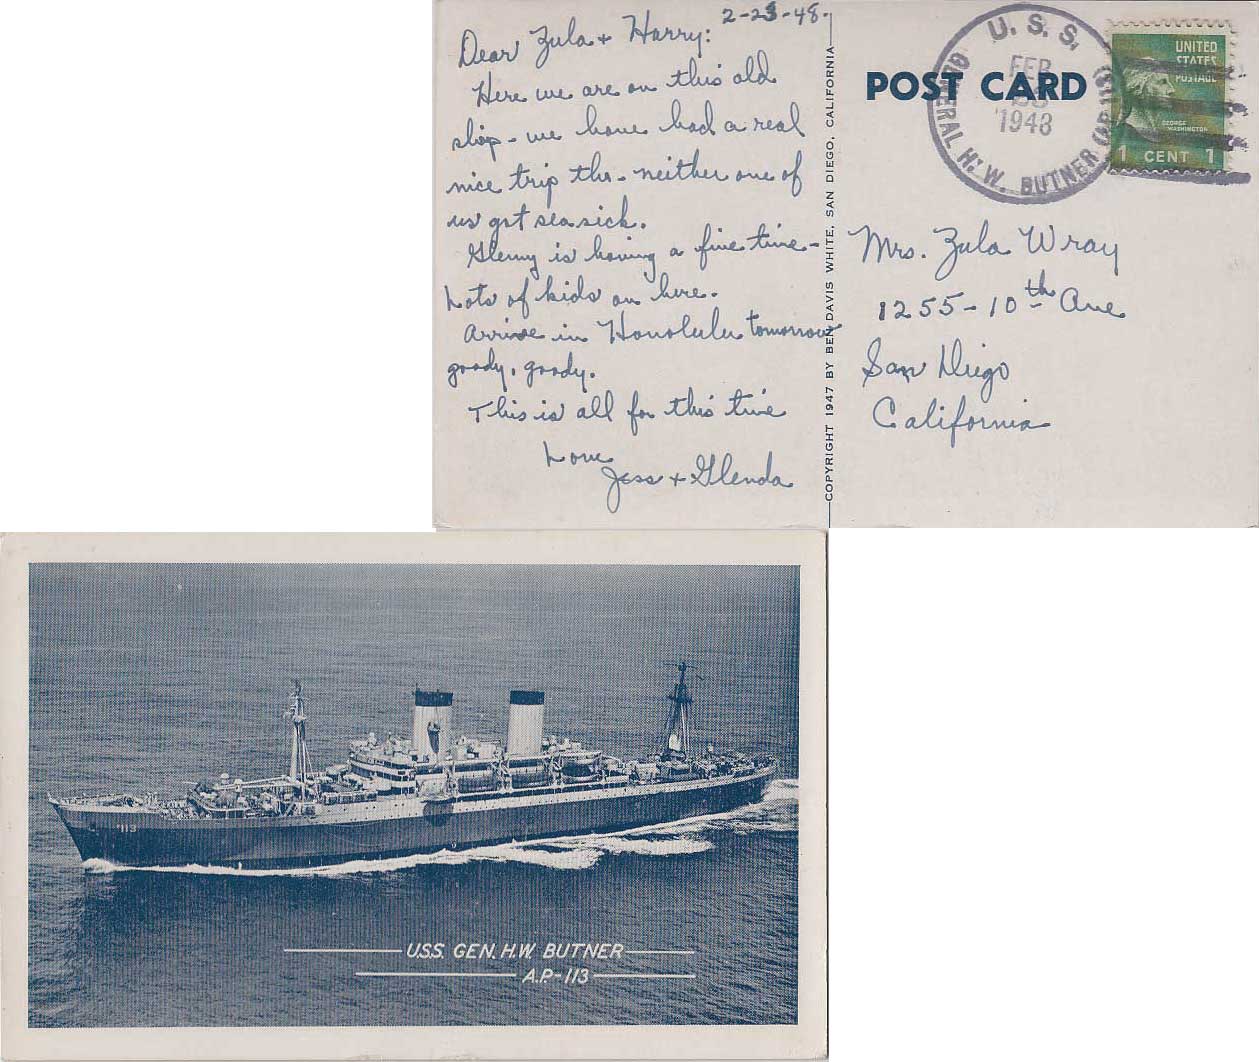 2-23-48.
Dear Zula + Harry:
Here we are on this old
ship - we have had a real
nice trip tho - neither one of
us got seasick.
Glenny is having a fine time -
Lots of kids on here.
Arrive in Honolulu tomorrow
goody, goody.
This is all for this time
Love
Jess + Glenda
COPYRIGHT 1947 BY BEN DAVIS WHITE, SAN DIEGO, CALIFORNIA
POST CARD
U. S. S.
GENERAL H. W. BUTNER
FEB
1948
UNITED
STATES
POSTAGE
GEORGE
WASHINGTON
1 CENT 1
Mrs. Zula Wray
1255 - 10th Ave
San Diego
California
113
U.S.S. GEN. H.W. BUTNER
A.P.-113